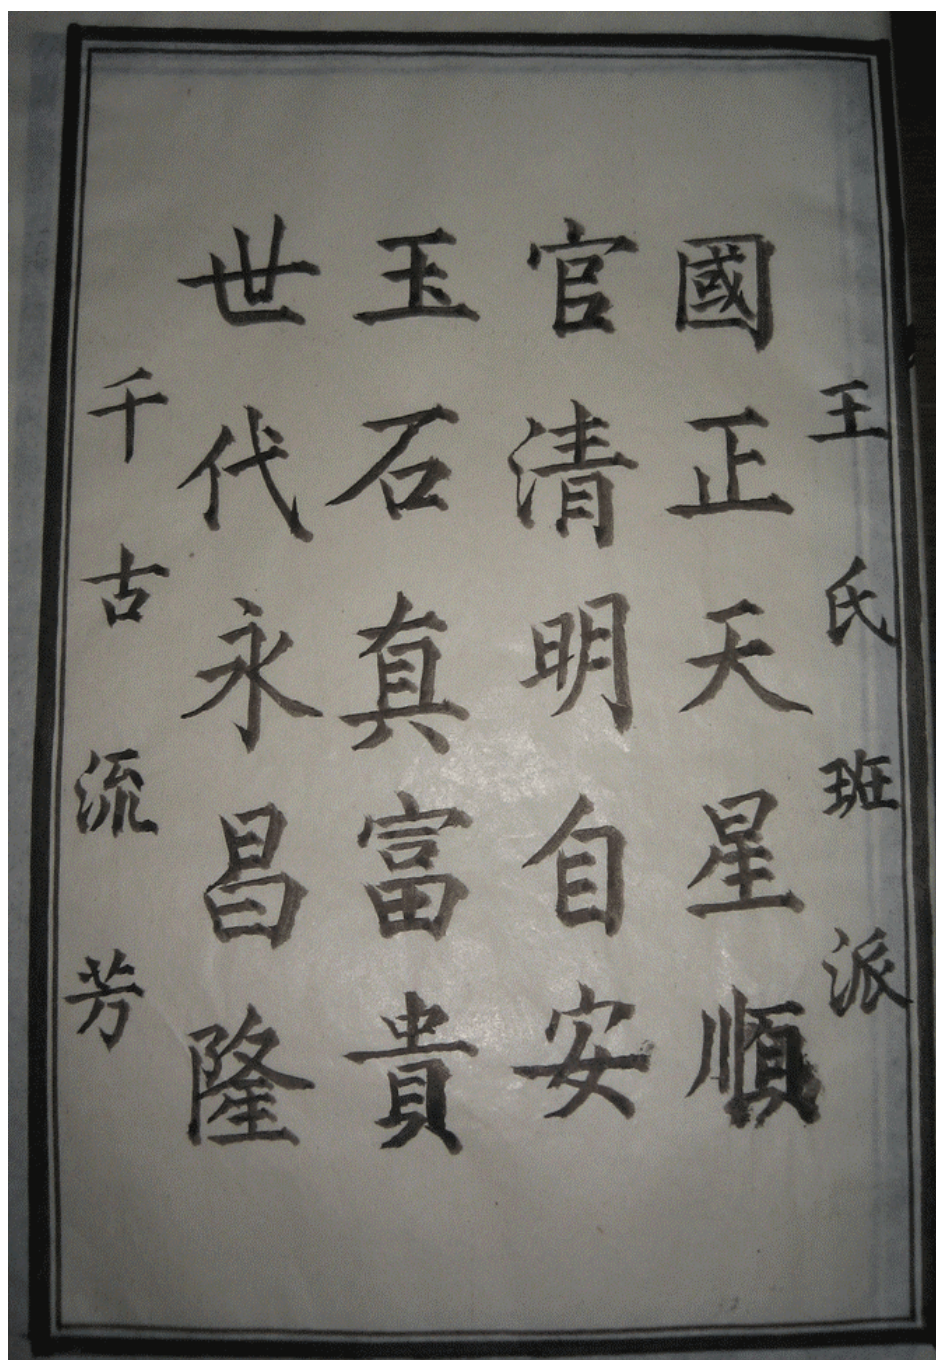 王氏班派
國正天星順
官清明自安
玉石真富貴
世代永昌隆
千古流芳